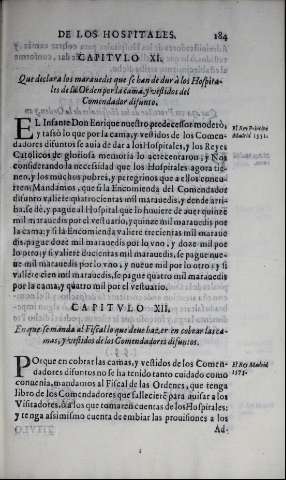 DE LOS HOSPITALES. 184
CAPITVLO XI.
Que declara los marauedis que se han de dar à los Hospita-
les de la Orden por la cama, y vestidos del
Comendador difunto.
EL Infante Don Enrique nuestro predecessor moderò,
y tassò lo que por la cama, y vestidos de los Comen-
dadores difuntos se auia de dar a los Hospitales, y los Reyes
Catolicos de gloriosa memoria lo acrecentaron, y Nos
considerando la necessidad que los Hospitales agora tie-
nen, y los muchos pobres, y peregrinos que a ellos concu-
tren: Mandamos, que si la Encomienda del Comendador
difunto valiere quatrocientas mil marauedis, y dende arri-
ba, se dè, y pague al Hospital que lo huuiere de auer quinze
mil marauedis por el vestuario, y quinze mil marauedis por
la cama; y si la Encomienda valiere trecientas mil maraue
dis, pague doze mil marauedis por lo vno, y doze mil por
lo otro; y si valiere ducientas mil marauedis, se pague nue-
ue mil marauedis por lo vno, y nueue mil por lo otro; y si
valiere cien mil marauedis, se pague quatro mil marauedis
por la cama, y quatro mil por el vestuario.
El Rey
Madrid 1551.
CAPITVLO XII.
En que se manda al Fiscal lo que deue hazer en cobrar las ca-
mas, y vestidos de los Comendadores difuntos.
POrque en cobrar las camas, y vestidos de los Comen-
dadores difuntos no se ha tenido tanto cuidado como
conuenia, mandamos al Fiscal de las Ordenes, que tenga
libro de los Comendadores que fallecierē para auisar a los
Visitadores, ò a los que tomaren cuentas de los Hospitales:
y tenga assimismo cuenta de embiar las prouisiones a los
El Rey Madrid
1573.
Ad-